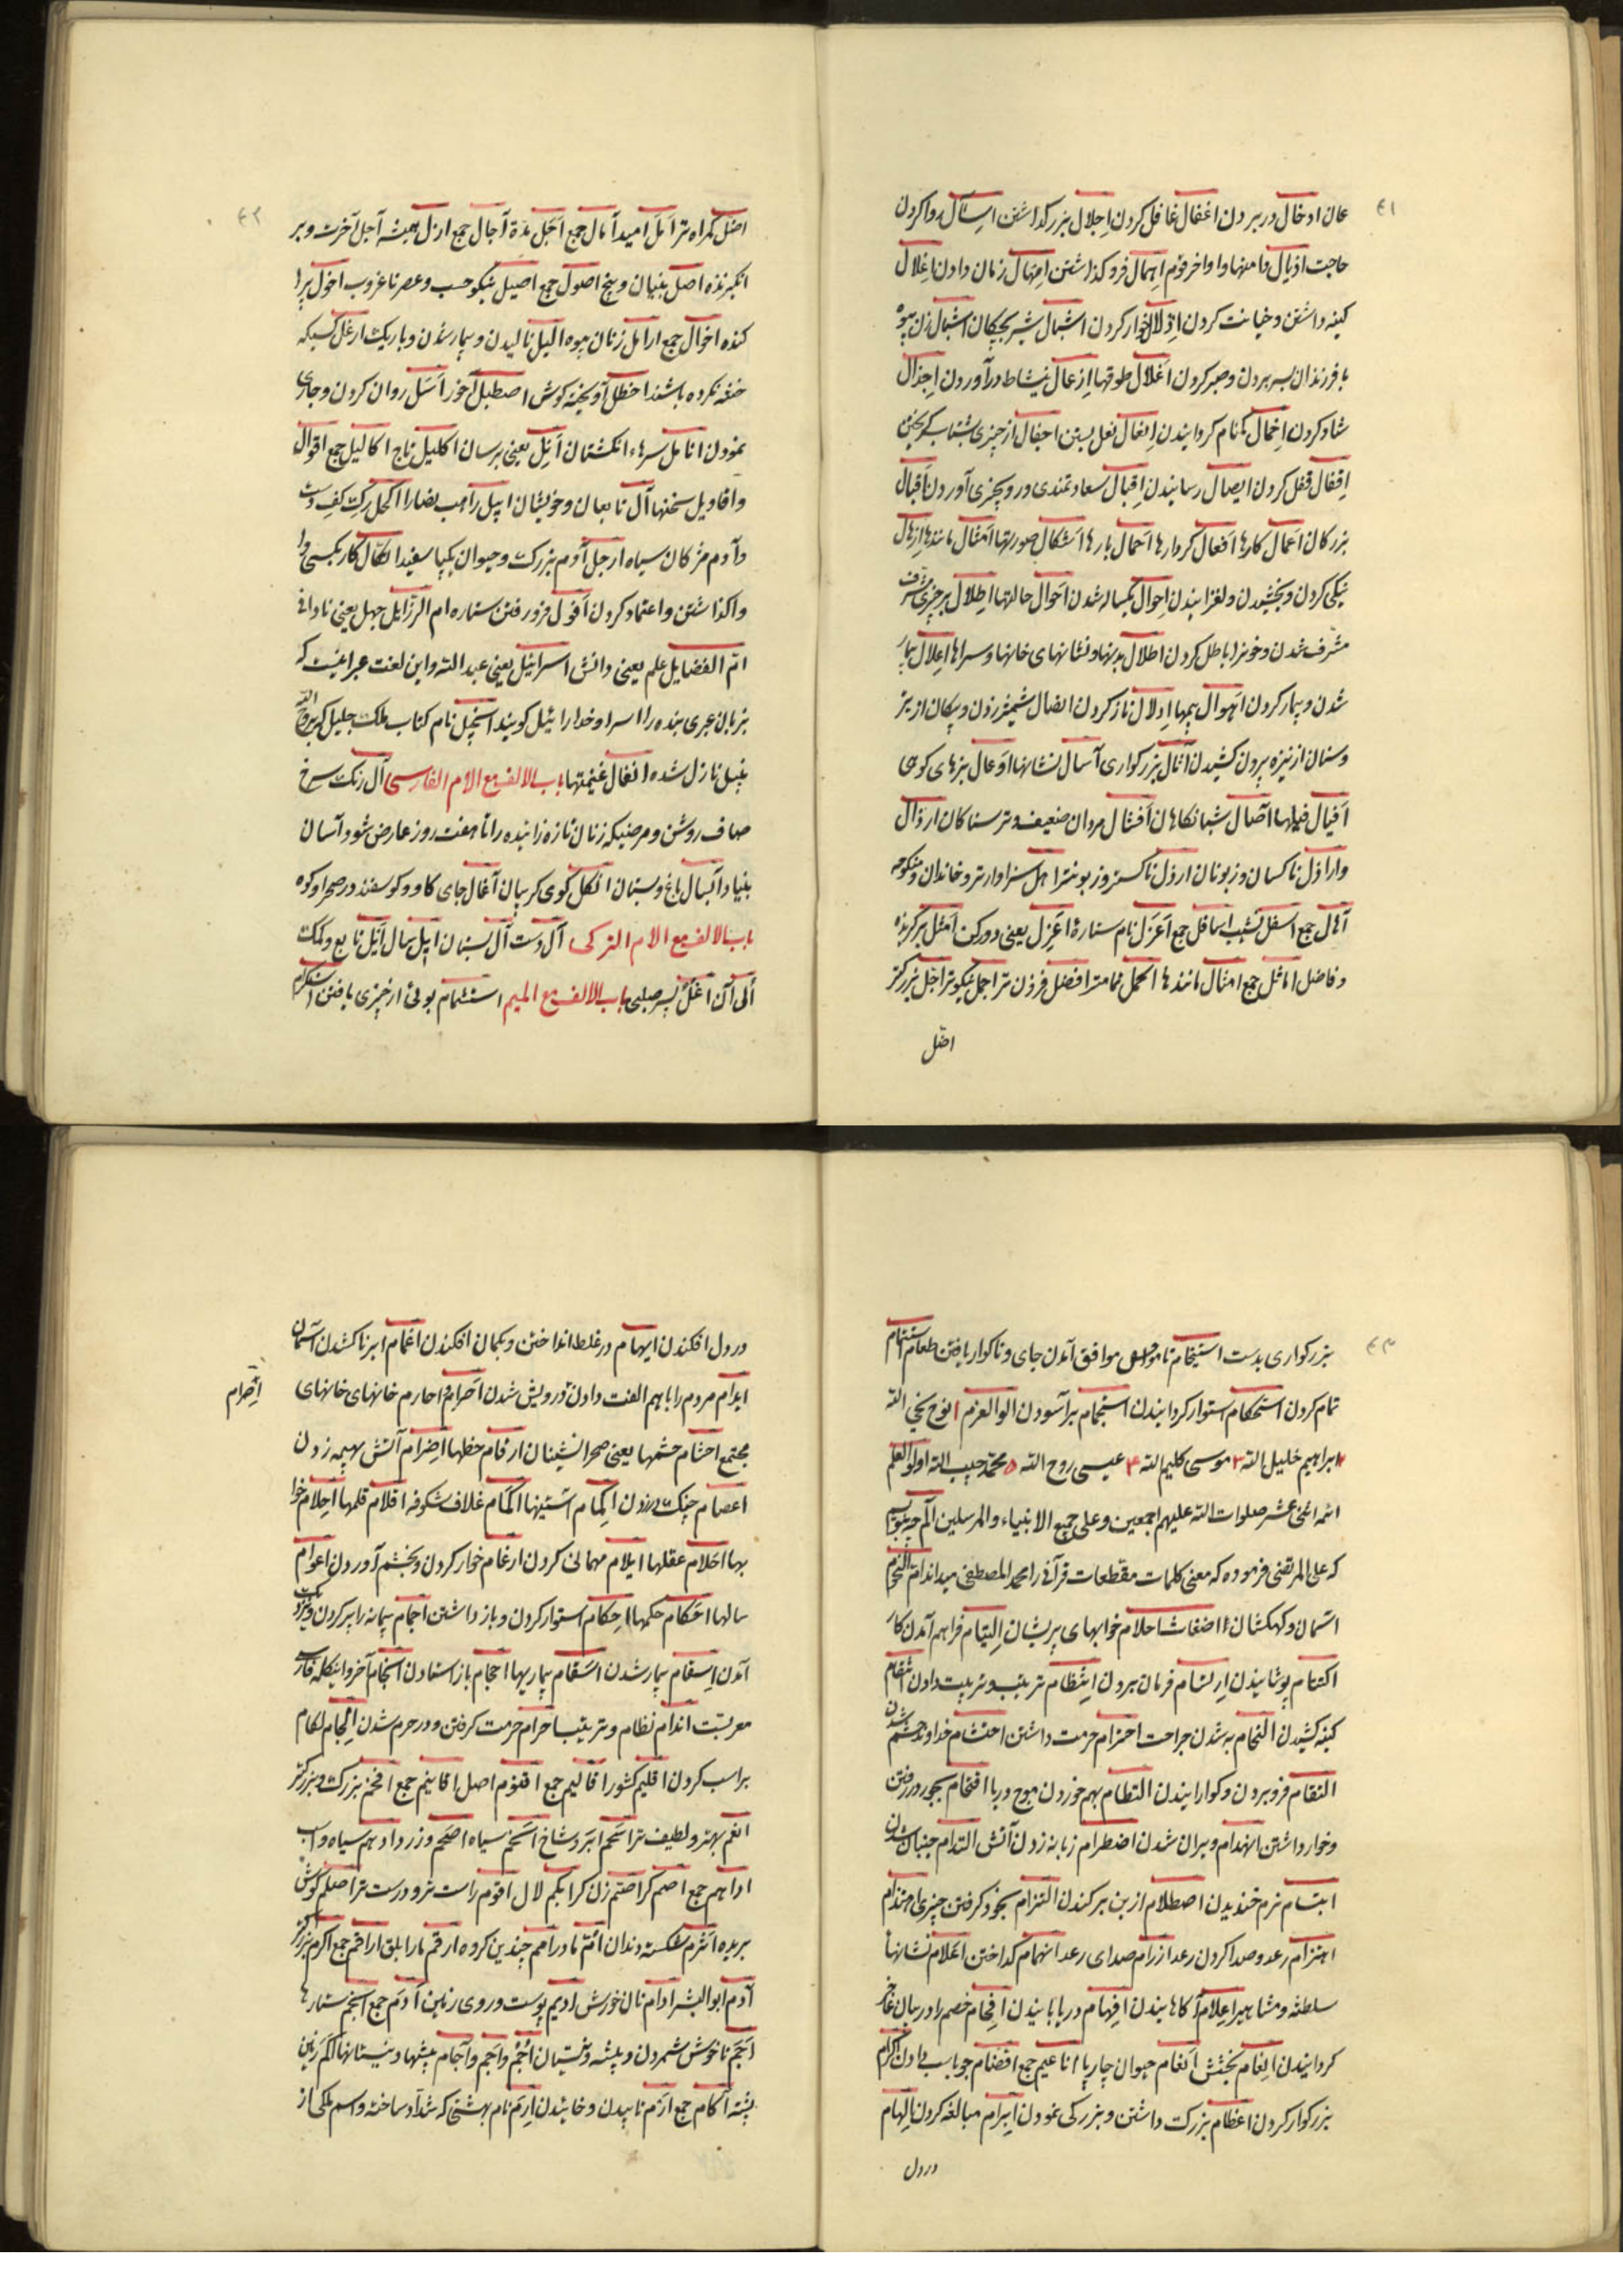 ٤١
عان ادخال در بردن اغفال غافل کردن اجلال بزرك داشتن اسئال روا کردن
حاجت اذیال دامنها و اواخر قوم اهمال فرو کذاشتن امهال زمان دادن اغلال
کینه داشتن و خیانت کردن اذلال خوار کردن اشبال شیر بچکان اشبال زن بیوه
با فرزندان بسر بردن و صبر کردن اغلال طوقها ازعال بنشاط درآوردن اجذال
شاد کردن اخمال کمنام کردانیدن انعال نعل بستن اجفال از چیزی بشتاب کریختن
اقفال قفل کردن ایصال رسانیدن اقبال سعادتمندی و رو بچیزی آوردن اقبال
بزرکان اعمال کارها افعال کردارها احمال بارها اشکال صورتها امثال مانندها ازلال
نیکی کردن و بخشیدن و لغزانیدن احوال یکساله شدن احوال حالتها اطلال بر چیزی
مشرف شدن و خونرا باطل کردن اطلال بدنها و نشانهای خانها و سراها اعلال بیمار
شدن و بیمار کردن اهوال بیمها ادلال ناز کردن انصال شمشیر زدن و پیکان از تیر
و سنان از نیزه بیرون کشیدن اثال بزرکواری آسال نشانها اوعال بزهای کوهی
افیال فیلها آصال شبانکاهان افشال مردان ضعیف و ترسناکان ارذال
و اراذل ناکسان و زبونان ارذل ناکستر و زبونتر اهل سزاوارتر و خاندان و منکوحه
آهال جمع اسفل نشیب اسافل جمع اعزل نام ستاره اعزل یعنی دور کن امثل برکزیده
و فاضل اماثل جمع امثال مانندها اکمل تمامتر افضل فزونتر اجمل نیکوتر اجل بزرکتر
اضل
٤٢
اضل کمراه تر امل امید آمال جمع اجل مدة آجال جمع ازل همیشه آجل آخرت و بر
انکیزنده اصل بنیان و بیخ اصول جمع اصیل نیکو حسب و عصر تا غروب اخول
کننده اخوال جمع ارامل زنان بیوه الیل نالیدن و بیمار شدن و باریک ارغل کسیکه
ختنه نکرده باشند اخطل آویخته کوش اصطبل آخور اسل روان کردن و جاری
نمودن انامل سرهاء انکشتان انل یعنی برسان اکلیل تاج اکالیل جمع اقوال
و اقاویل سخنها آل تابعان و خویشان ابیل راهب نصارا اکحل رك کف دست
و آدم مژکان سیاه ارجل آدم بزرك و حیوان یکپا سفید اتکال کار بکسی وا
واکذاشتن و اعتماد کردن افول فرو رفتن ستاره ام الرزایل جهل یعنی نادانی
ام الفضایل علم یعنی دانش اسرائیل یعنی عبد الله و این لغت عبرانیست که
بزبان عبری بنده را اسرا و خدا را ئیل کویند انجیل نام کتاب ملك جلیل که بروح الله
بنیل نازل شده انفال غنیمتها باب الالف مع اللام الفارسی آل رنك سرخ
صاف روشن و مرضیکه زنان تازه زاینده را تا هفت روز عارض شود و آسان
بنیاد آبسال باغ و بستان انکل کوی کریبان آغال جای کاو و کوسفند در صحرا و کوه
باب الالف مع اللام الترکی ال دست آل بستان ایل سال ایل تابع و کمك
الی آن اغل پسر صلبی باب الالف مع المیم استشمام بوئی از چیزی یافتن استکرام
٤٣
بزرکواری بدست استیخام ناموافق آمدن جای و ناکوار یافتن طعام استتمام
تمام کردن استحکام استوار کردانیدن استجمام برآسودن الوالعزم ۱ نوح نجی الله
۲ ابراهیم خلیل الله ۳ موسی کلیم الله ۴ عیسی روح الله ۵ محمد حبیب الله اولو العلم
ائمه اثنی عشر صلوات الله علیهم اجمعین و علی جمیع الانبیاء والمرسلین الم
که علی المرتضی فرموده که معنی کلمات مقطعات قرآنی را محمد المصطفی میداند ام النجوم
آسمان و کهکشان اضغاث احلام خوابهای پریشان التیام فراهم آمدن کار
اکتتام پوشانیدن ارتسام فرمان بردن انتظام ترتیب و تربیت دادن انتقام
کینه کشیدن التحام به شدن جراحت احترام حرمت داشتن احتشام خداوند حشم شدن
التقام فرو بردن و کوارانیدن التطام بهم خوردن موج دریا اقتحام بجور در رفتن
و خوار داشتن انهدام ویران شدن اضطرام زبانه زدن آتش التدام جنبان شدن
ابتسام نرم خندیدن اصطلام از بن برکندن التزام بخود کرفتن چیزی
اهتزام رعد و صدا کردن رعد ارزام صدای رعد انهمام کداختن اعلام نشانها
سلطنه و مشاهیر اعلام آکاهانیدن افهام دریابانیدن افحام خصم را در بیان عاجز
کردانیدن انعام بخشش انعام حیوان چارپا اناعیم جمع جواب دادن اکرام
بزرکوار کردن اعظام بزرك داشتن و بزرکی نمودن ابرام مبالغه کردن الهام
در دل
در دل افکندن ایهام در غلط انداختن و بکمان افکندن اغمام ابرناك شدن آسمان
ایدام مردم را باهم الفت دادن و درویش شدن اصرام و احارم خانهای خانهای
اصرام
مجتمع احشام حشمها یعنی صحرا نشینان ارقام خطها اضرام آتش بهیمه زدن
اعصام چنك در زدن اکمام آستینها اکمام غلاف شکوفه اقلام قلمها احلام خوا
بها احلام عقلها ایلام مهمانی کردن ارغام خوار کردن و بخشم آوردن اعوام
سالها احکام حکمها احکام استوار کردن و باز داشتن اجمام پیمانه را پر کردن و نزدیك
آمدن اسقام بیمار شدن اسقام بیماریها احجام باز استادن انجام آخر و اینکلمه فارسی
معربست اندام نظام و ترتیب احرام حرمت کرفتن و در حرم شدن الجام لکام
بر اسب کردن اقلیم کشور اقالیم جمع اقنوم اصل اقانیم جمع افخم بزرك و بزرکتر
انعم بهتر و لطیف تر اسحم ابر و شاخ اسحم سیاه اصحم و زرد ادهم سیاه و اسب
اداهم جمع اصم کر اصم زن کر ابکم لال اقوم راست تر و درست تر اصلم کوش
بریده اثرم شکسته دندان ام مادر امم چندین کروه ارقم مار ابلق اراقم جمع اکرم بزرکتر
آدم ابو البشر ادام نان خورش ادیم پوست و روی زمین آدم جمع انجم ستارها
اجم ناخوش شمردن و بیشه و نیستان اجم و اجم و آجام بیشها و نیستانها اکم زمین
پشته آکام جمع ازم نابیدن و خائیدن ارم نام بهشتی که شداد ساخته و اسم ملکی از